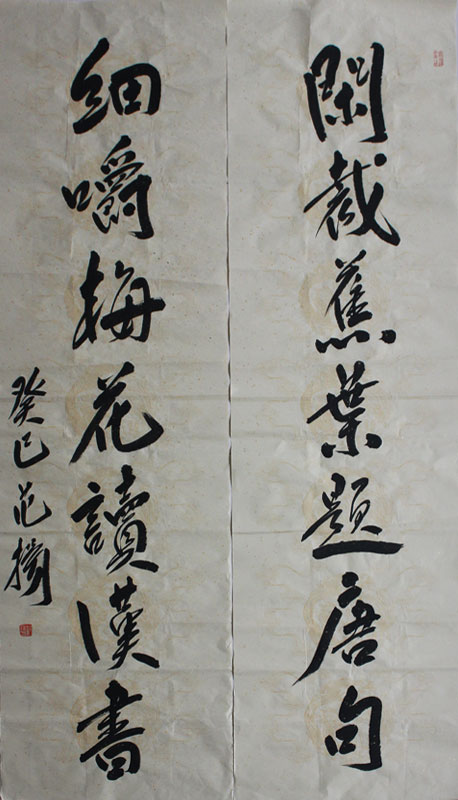 閑裁蕉葉題唐句
細嚼梅花讀漢書
癸巳范